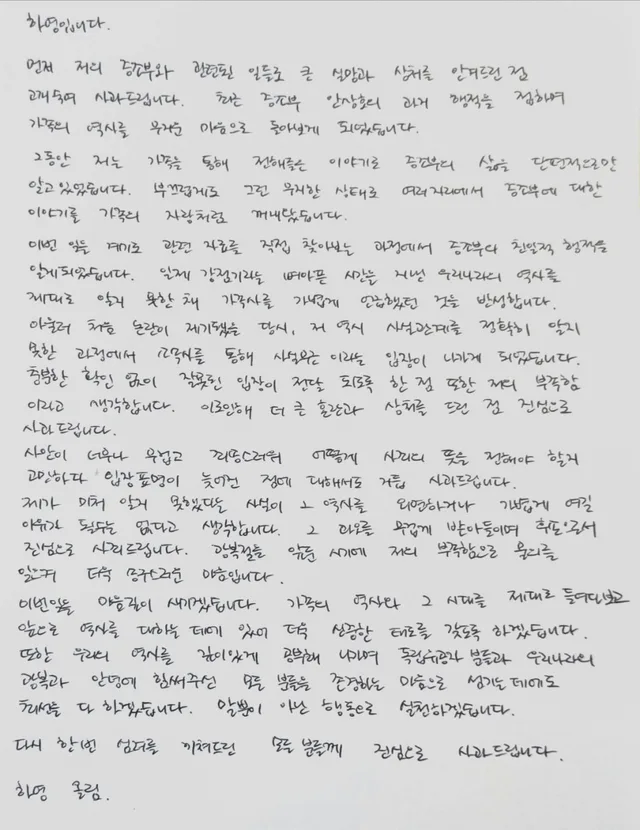 하영입니다.
먼저 저의 증조부와 관련된 일들로 큰 실망과 상처를 안겨드린 점
고개숙여 사과드립니다. 최근 증조부 안상호의 과거 행적을 접하며
가족의 역사를 무거운 마음으로 돌아보게 되었습니다.
그동안 저는 가족을 통해 전해들은 이야기로 증조부의 삶을 단편적으로만
알고 있었습니다. 부끄럽게도 그런 무지한 상태로 여러자리에서 증조부에 대한
이야기를 가족의 자랑처럼 꺼내왔습니다.
이번 일을 계기로 관련 자료를 직접 찾아보는 과정에서 증조부의 친일적 행적을
알게되었습니다. 일제 강점기라는 뼈아픈 시간을 지나온 우리나라의 역사를
제대로 알지 못한 채 가족사를 가볍게 언급했던 것을 반성합니다.
아울러 처음 논란이 제기됐을 당시, 저 역시 사실관계를 정확히 알지
못한 과정에서 소속사를 통해 사실무근 이라는 입장이 나가게 되었습니다.
충분한 확인 없이 잘못된 입장이 전달 되도록 한 점 또한 저의 부족함
이라고 생각합니다. 이로인해 더 큰 혼란과 상처를 드린 점 진심으로
사과드립니다.
사안이 너무나 무겁고 죄송스러워 어떻게 사죄의 뜻을 전해야 할지
고민하다 입장표명이 늦어진 점에 대해서도 거듭 사과드립니다.
제가 미처 알지 못했다는 사실이 그 역사를 외면하거나 가볍게 여길
이유가 될수는 없다고 생각합니다. 그 과오를 무겁게 받아들이며 후손으로서
진심으로 사죄드립니다. 광복절을 앞둔 시기에 저의 부족함으로 물의를
일으켜 더욱 송구스러운 마음입니다.
이번일을 마음깊이 새기겠습니다. 가족의 역사와 그 시대를 제대로 들여다보고
앞으로 역사를 대하는 데에 있어 더욱 신중한 태도를 갖도록 하겠습니다.
또한 우리의 역사를 깊이있게 공부해 나가며 독립유공자 분들과 우리나라의
광복과 안녕에 힘써주신 모든 분들을 존경하는 마음으로 섬기는데에도
최선을 다 하겠습니다. 말뿐이 아닌 행동으로 실천하겠습니다.
다시 한번 심려를 끼쳐드린 모든 분들께 진심으로 사과드립니다.
하영 올림.